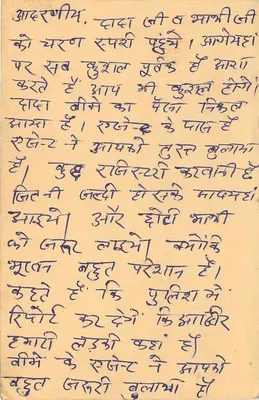 आदरणीय, दादा जी व भाभी जी
को चरण स्पर्श पहुंचे। आगे यहां
पर सब कुशल पूर्वक हैं आशा
करते हैं आप भी कुशल होगें।
दादा बीमे का पैसा निकल
आया है। एजेन्ट के पास है
एजेन्ट ने आपको तुरन्त बुलाया
है। कुछ राजिस्टरी करवानी है
जितनी जल्दी हो सके आप यहां
आइये। और छोटी भाभी
को जरूर लाइये। क्योंकि
बहुत परेशान हैं।
कहते हैं कि पुलिश में
रिपोर्ट कर देगें कि आखिर
हमारी लड़की कहां है।
बीमे के एजेन्ट ने आपको
बहुत जरूरी बुलाया है